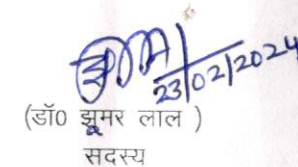 23/02/2024
(डॉ0 झूमर लाल )
सदस्य